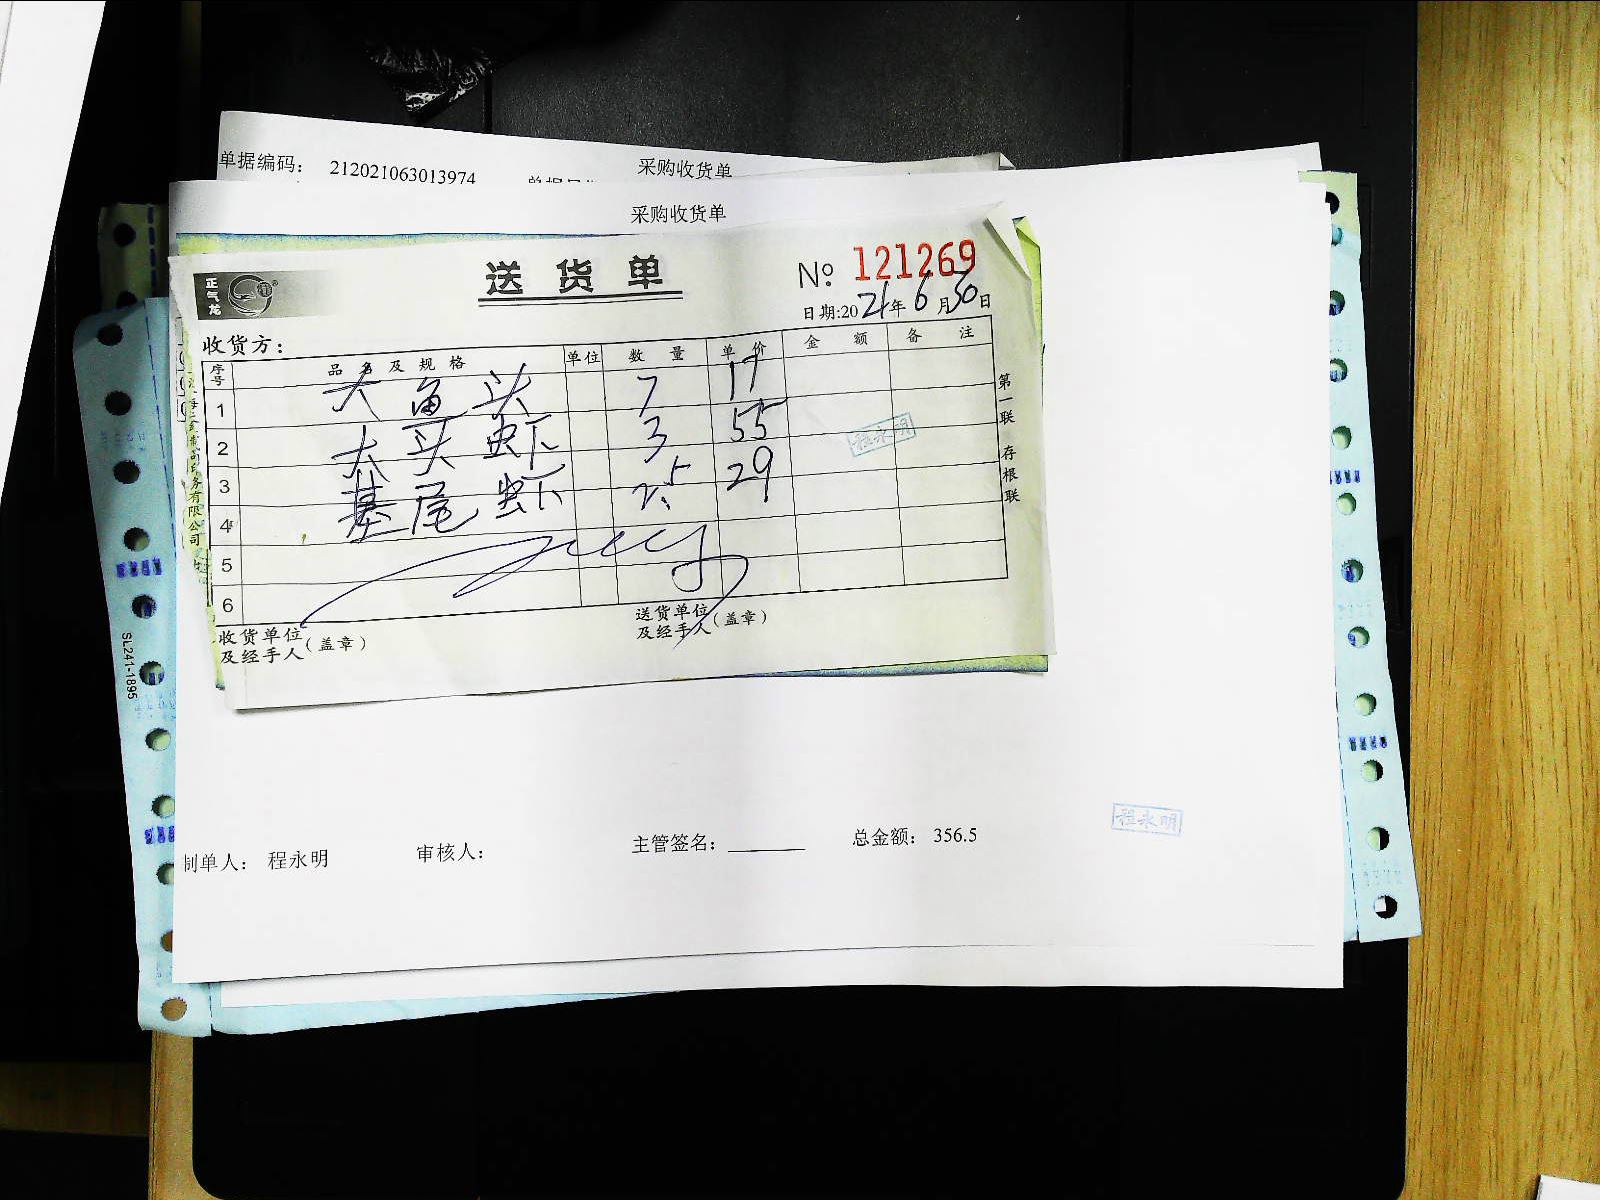 单据编码： 212021063013974 采购收货单
采购收货单
正气龙
送货单 № 121269
日期:2021年6月30日
收货方：
序号 品名及规格 单位 数量 单价 金额 备注
1 大鱼头 7 17
2 大头虾 3 55
3 基尾虾 2.5 29
4
5
6
程永明
第一联 存根联
收货单位及经手人（盖章）
送货单位及经手人（盖章）
SL241-1895
程永明
制单人： 程永明 审核人： 主管签名：________ 总金额： 356.5